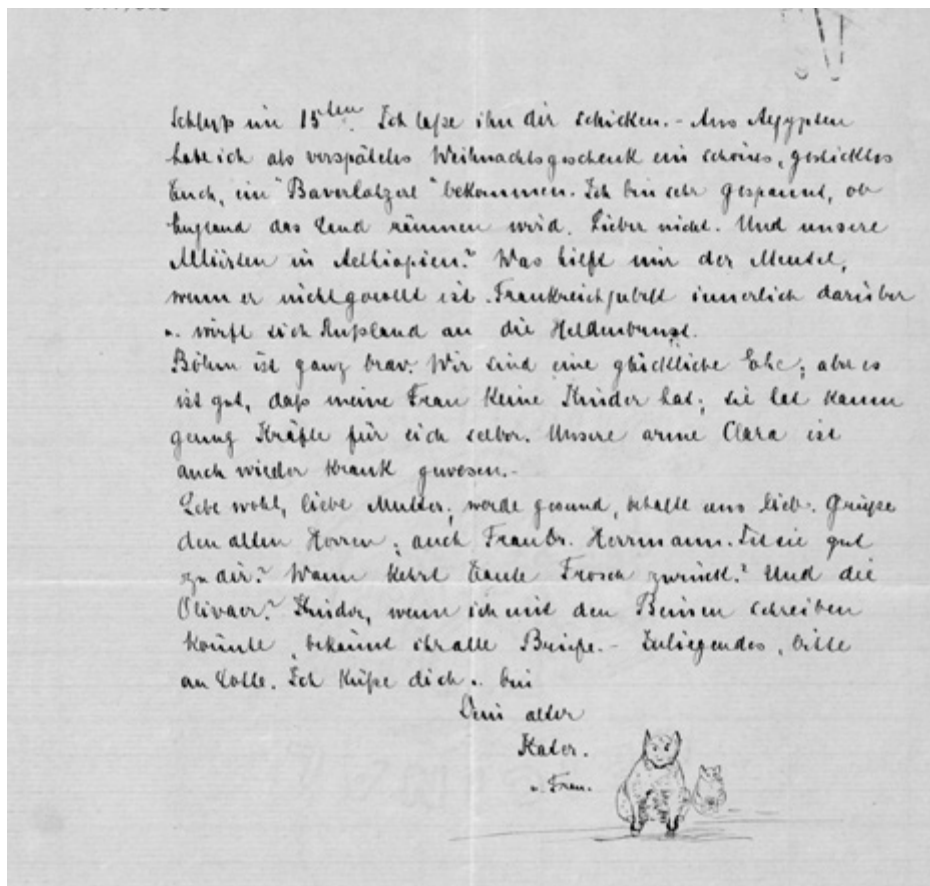 Schluß im 15ten. Ich laße ihn dir schicken. - Aus Aegypten
habe ich als verspätetes Weihnachtsgeschenk ein schönes, gesticktes
Tuch, ein "Baverlatzerl" bekommen. Ich bin sehr gespannt, ob
England das Land räumen wird. Lieber nicht. Und unsere
Alliirten in Aethiopien? Was hilft mir der Mentel,
wenn er nicht gerollt ist. Frankreich jubelt innerlich darüber
u. wirft sich Rußland an die Heldenbrust.
Böhm ist ganz brav. Wir sind eine glückliche Ehe; aber es
ist gut, daß meine Frau keine Kinder hat; sie hat kaum
genug Kräfte für sich selber. Unsere arme Clara ist
auch wieder krank gewesen. -
Lebe wohl, liebe Mutter, werde gesund, behalte uns lieb. Grüße
den alten Herren; auch Frau Dr. Herrmann. Ist sie gut
zu dir? Wann kehrt Tante Frosch zurück? Und die
Olivaer? Kinder, wenn ich mit den Beinen schreiben
könnte, bekämt ihr alle Briefe. - Inliegendes, bitte
an Lolle. Ich küße dich u. bin
Dein alter
Kater.
u. Frau.